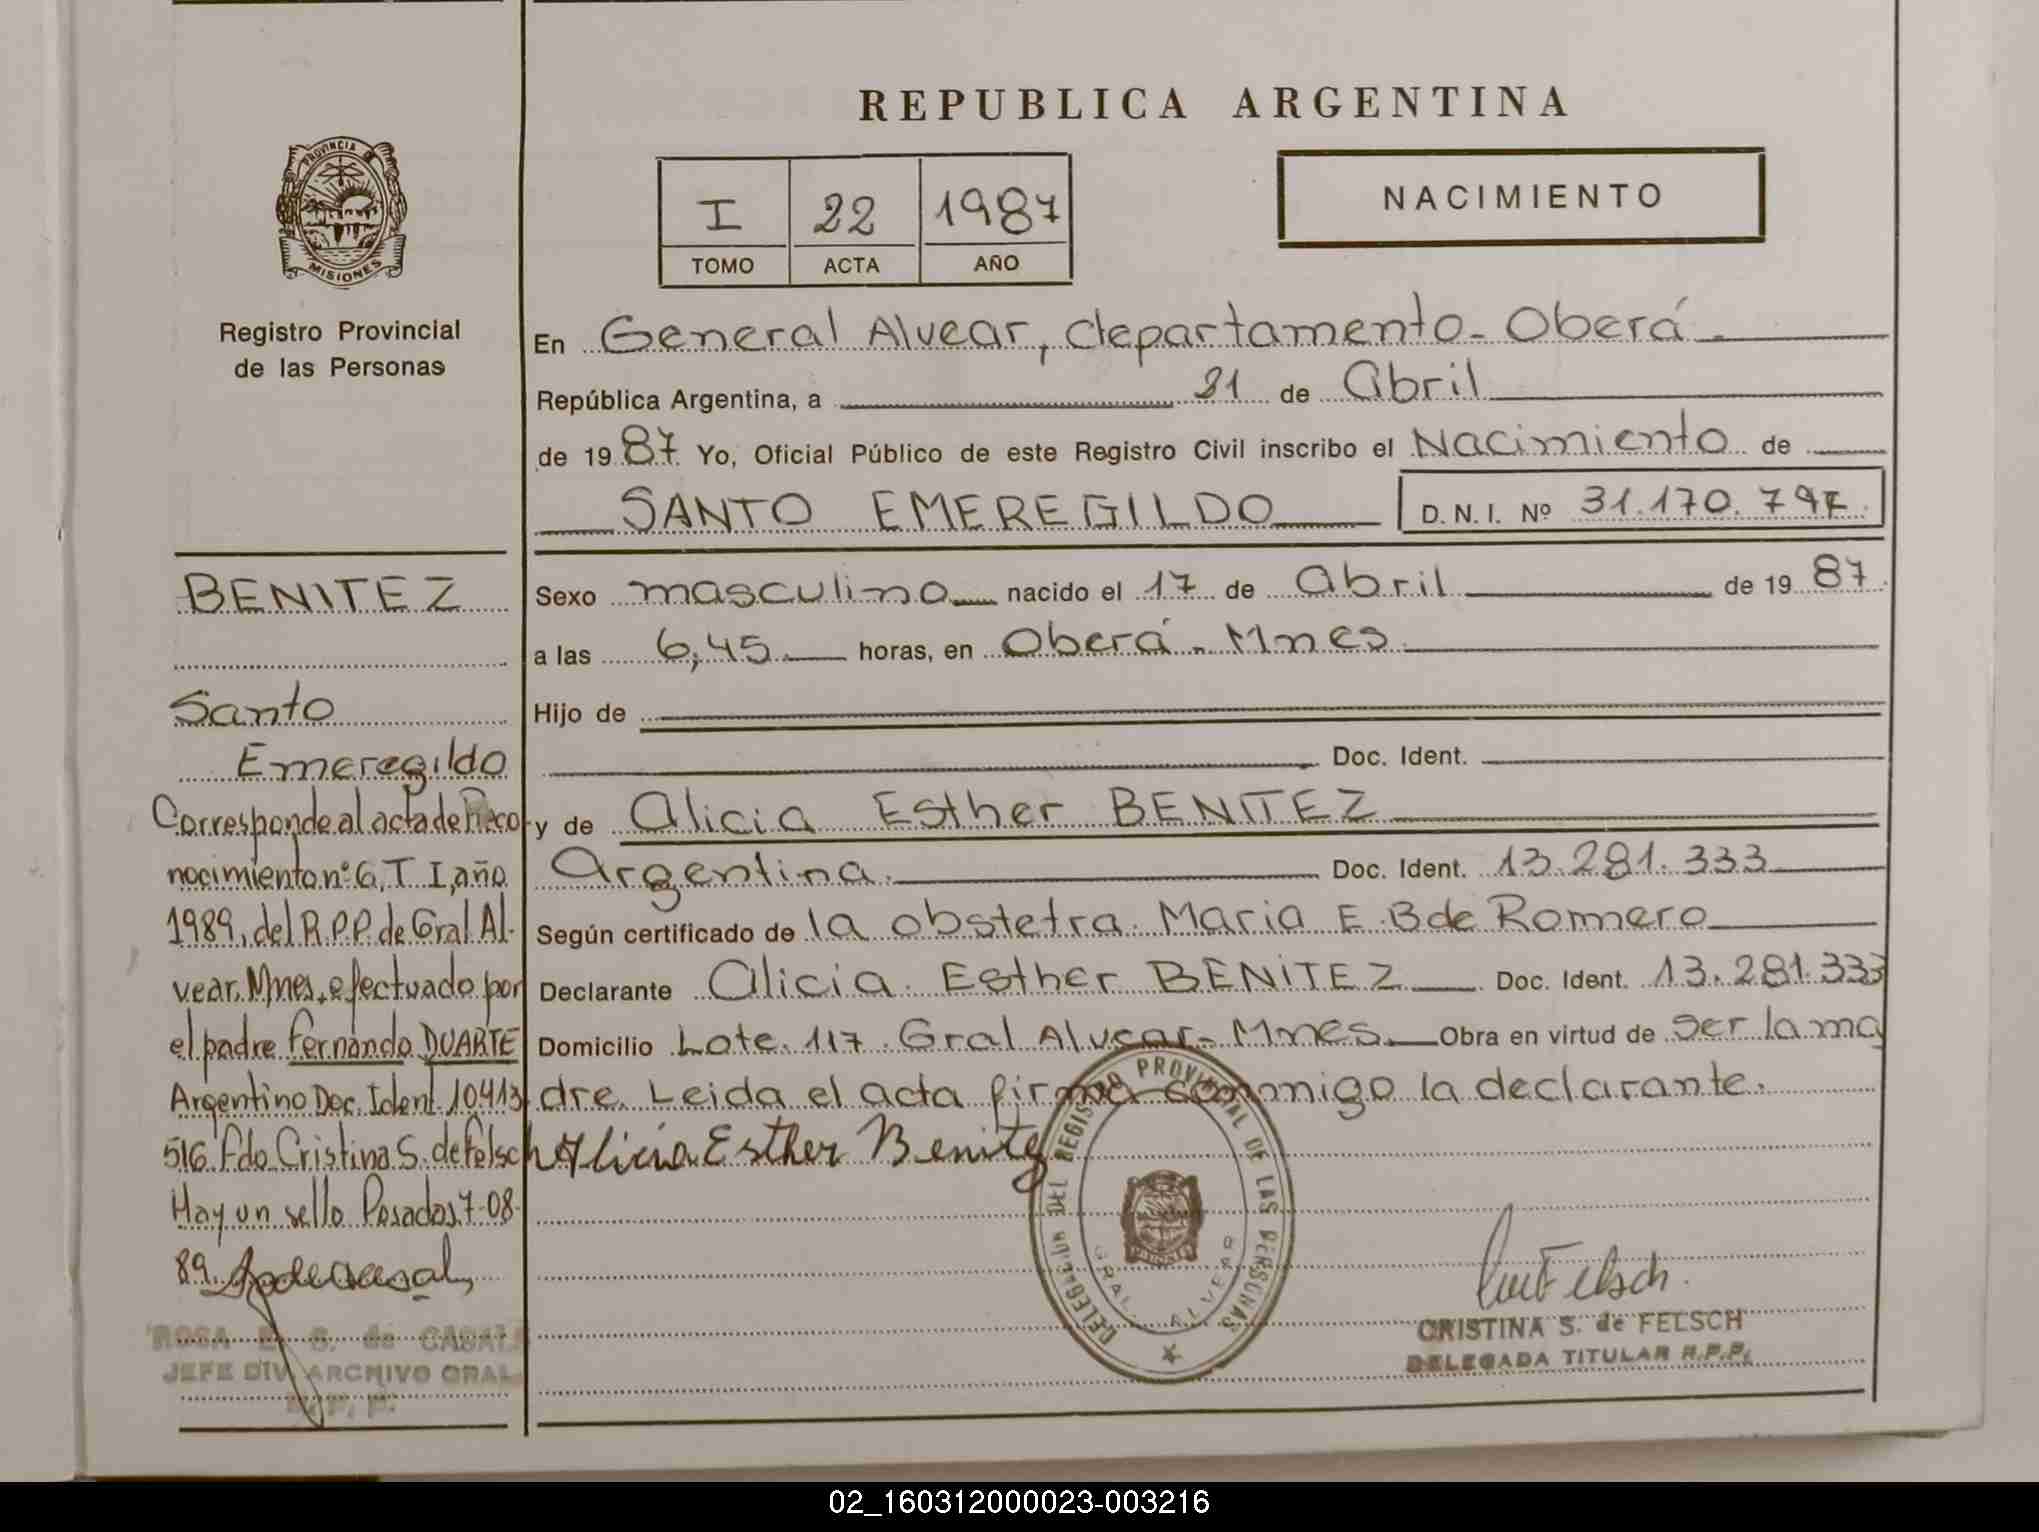 REPUBLICA ARGENTINA
PROVINCIA DE
MISIONES
Registro Provincial
de las Personas
I 22 1987
TOMO ACTA AÑO
NACIMIENTO
En General Alvear, departamento - Oberá -
República Argentina, a 21 de Abril
de 1987 Yo, Oficial Público de este Registro Civil inscribo el Nacimiento de
SANTO EMEREGILDO D.N.I. Nº 31.170.797
Sexo masculino nacido el 17 de Abril de 1987
a las 6,45 horas, en Oberá - Mnes
Hijo de
Doc. Ident.
y de Alicia Esther BENITEZ
Argentina. Doc. Ident. 13.281.333
Según certificado de la obstetra Maria E. B de Romero
Declarante Alicia Esther BENITEZ Doc. Ident. 13.281.333
Domicilio Lote 117 Gral Alvear - Mnes. Obra en virtud de ser la ma
dre. Leida el acta firma conmigo la declarante.
Alicia Esther Benitez
DELEGACION DEL REGISTRO PROVINCIAL DE LAS PERSONAS
GRAL. ALVEAR
CRISTINA S. de FELSCH
DELEGADA TITULAR R.P.P.
BENITEZ
Santo
Emeregildo
Corresponde al acta de Reco
nocimiento nº 6, T I, año
1989, del R.P.P. de Gral Al-
vear, Mnes, efectuado por
el padre Fernando DUARTE
Argentino Doc. Ident. 10.413.
516 Fdo Cristina S. de Felsch
Hay un sello Posadas, 7-08-
89.
ROSA E. S. de CASALS
JEFE DIV. ARCHIVO GRAL.
R. P. P.
02_160312000023-003216